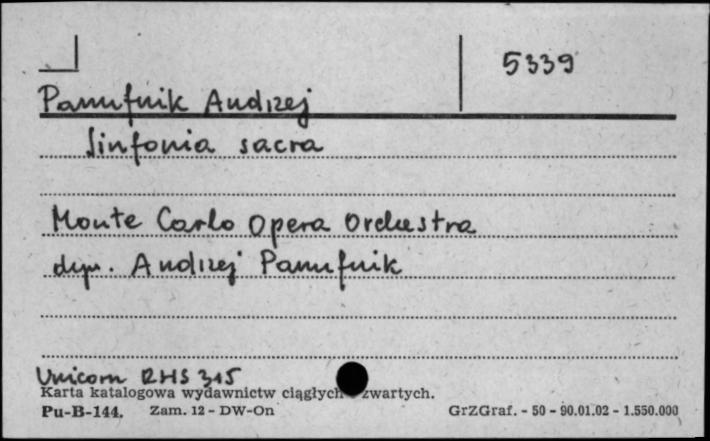 5339
Panufnik Andrzej
Sinfonia sacra
Monte Carlo Opera Orchestra
dyr. Andrzej Panufnik
Unicorn RHS 315
Karta katalogowa wydawnictw ciągłych zwartych.
Pu-B-144. Zam. 12 - DW-On GrZGraf. - 50 - 90.01.02 - 1.550.000